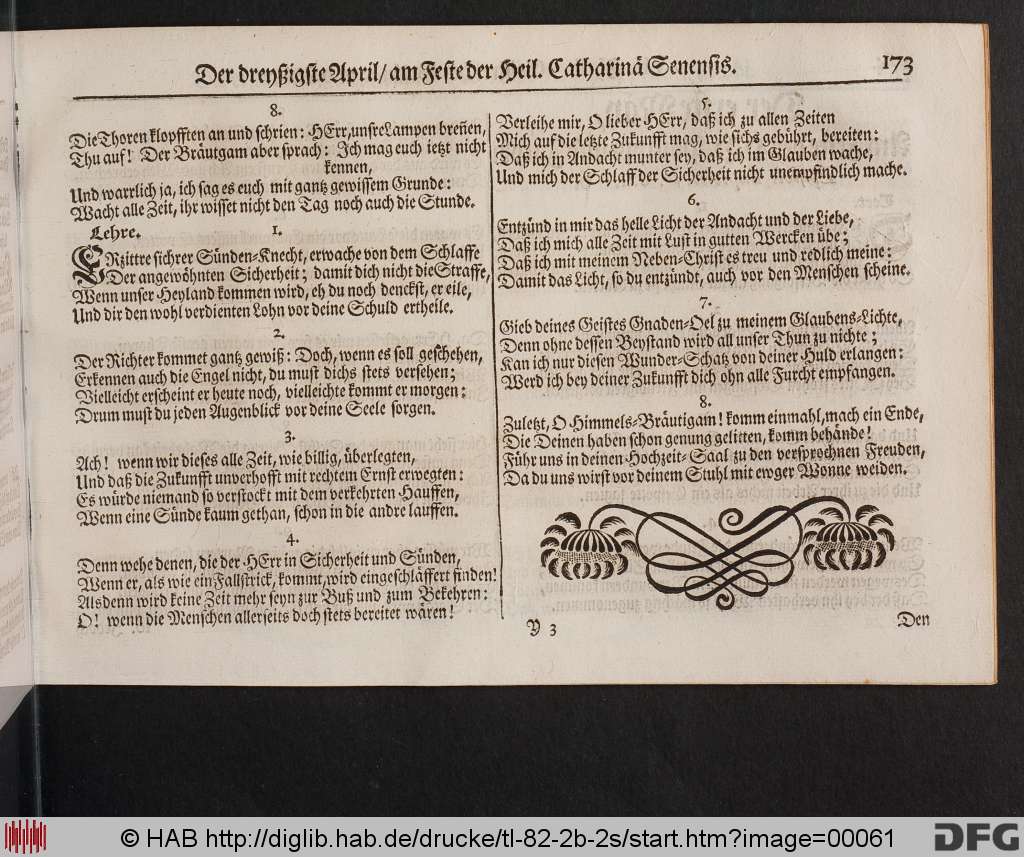 Der dreyßigste April/ am Feste der Heil. Catharinä Senensis.
173
8.
Die Thoren klopfften an und schrien: HErr, unsre Lampen breñen,
Thu auf! Der Bräutgam aber sprach: Ich mag euch ietzt nicht
kennen,
Und warrlich ja, ich sag es euch mit gantz gewissem Grunde:
Wacht alle Zeit, ihr wisset nicht den Tag noch auch die Stunde.
Lehre. 1.
ERzittre sichrer Sünden-Knecht, erwache von dem Schlaffe
Der angewöhnten Sicherheit; damit dich nicht die Straffe,
Wenn unser Heyland kommen wird, eh du noch denckst, er eile,
Und dir den wohl verdienten Lohn vor deine Schuld ertheile.
2.
Der Richter kommet gantz gewiß: Doch, wenn es soll geschehen,
Erkennen auch die Engel nicht, du must dichs stets versehen;
Vielleicht erscheint er heute noch, vielleichte kommt er morgen:
Drum must du jeden Augenblick vor deine Seele sorgen.
3.
Ach! wenn wir dieses alle Zeit, wie billig, überlegten,
Und daß die Zukunfft unverhofft mit rechtem Ernst erwegten:
Es würde niemand so verstockt mit dem verkehrten Hauffen,
Wenn eine Sünde kaum gethan, schon in die andre lauffen.
4.
Denn wehe denen, die der HErr in Sicherheit und Sünden,
Wenn er, als wie ein Fallstrick, kommt, wird eingeschläffert finden!
Alsdenn wird keine Zeit mehr seyn zur Buß und zum Bekehren:
O! wenn die Menschen allerseits doch stets bereitet wären!
5.
Verleihe mir, O lieber HErr, daß ich zu allen Zeiten
Mich auf die letzte Zukunfft mag, wie sichs gebührt, bereiten:
Daß ich in Andacht munter sey, daß ich im Glauben wache,
Und mich der Schlaff der Sicherheit nicht unempfindlich mache.
6.
Entzünd in mir das helle Licht der Andacht und der Liebe,
Daß ich mich alle Zeit mit Lust in gutten Wercken übe;
Daß ich mit meinem Neben-Christ es treu und redlich meine:
Damit das Licht, so du entzündt, auch vor den Menschen scheine.
7.
Gieb deines Geistes Gnaden-Oel zu meinem Glaubens-Lichte,
Denn ohne dessen Beystand wird all unser Thun zu nichte;
Kan ich nur diesen Wunder-Schatz von deiner Huld erlangen:
Werd ich bey deiner Zukunfft dich ohn alle Furcht empfangen.
8.
Zuletzt, O Himmels-Bräutigam! komm einmahl, mach ein Ende,
Die Deinen haben schon genung gelitten, komm behände!
Führ uns in deinen Hochzeit-Saal zu den versprochnen Freuden,
Da du uns wirst vor deinem Stuhl mit ewger Wonne weiden.
Y 3
Den
© HAB http://diglib.hab.de/drucke/tl-82-2b-2s/start.htm?image=00061
DFG